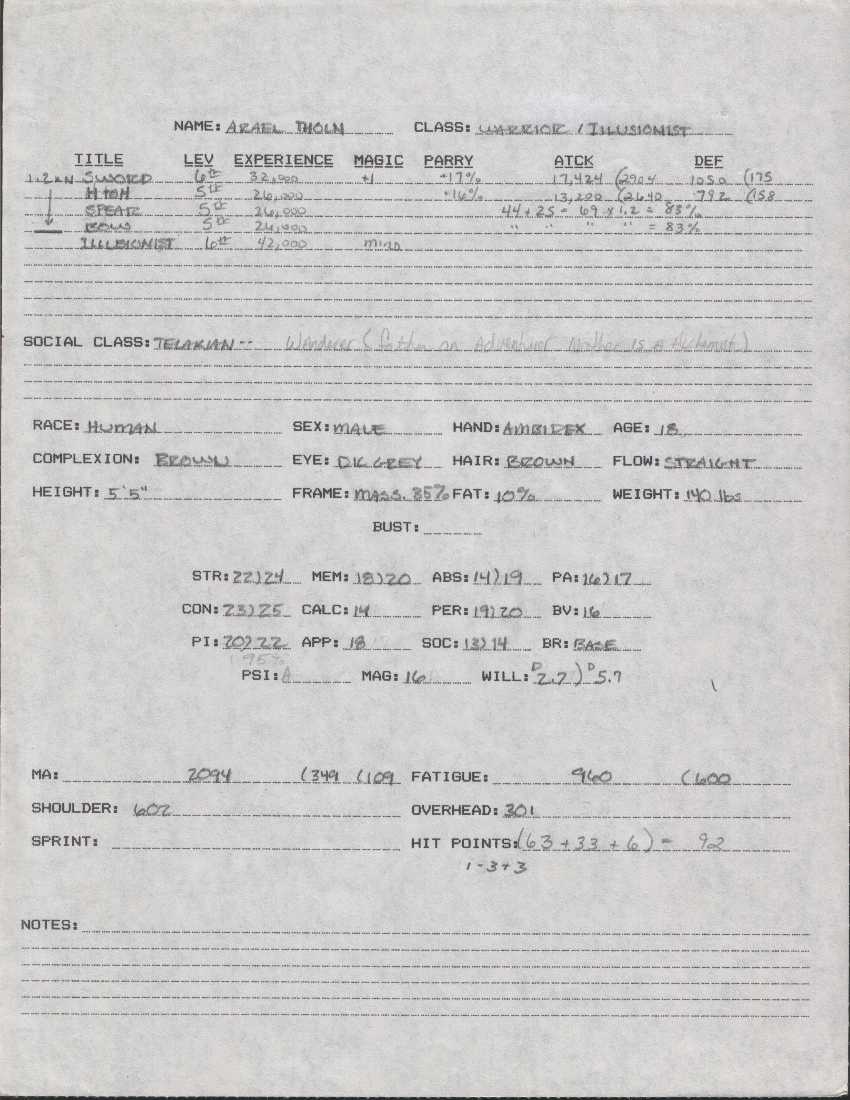 NAME: ARAEL THOLN CLASS: WARRIOR / ILLUSIONIST
TITLE LEV EXPERIENCE MAGIC PARRY ATCK DEF
SWORD 6th 32,000 +1 +17% 17,424 (2904 1050 (175
HTOH 5th 26,000 +16% 13,200 (2640 792 (158
SPEAR 5th 26,000 44 + 25 = 69 x 1.2 = 83%
BOW 5th 26,000 " " " " = 83%
ILLUSIONIST 6th 42,000 mind
SOCIAL CLASS: TELAKIAN -- Wanderer (father an Adventurer Mother is a Alchemist)
RACE: HUMAN SEX: MALE HAND: AMBIDEX AGE: 18
COMPLEXION: BROWN EYE: DK GREY HAIR: BROWN FLOW: STRAIGHT
HEIGHT: 5'5" FRAME: MASS. 85% FAT: 10% WEIGHT: 140 lbs
BUST:
STR: 22)24 MEM: 18)20 ABS: 14)19 PA: 16)17
CON: 23)25 CALC: 14 PER: 19)20 BV: 16
PI: 20)22 APP: 18 SOC: 13)14 BR: BASE
95%
PSI: A MAG: 16 WILL: D2.7) D5.7
MA: 2094 (349 (109 FATIGUE: 960 (600
SHOULDER: 602 OVERHEAD: 301
SPRINT: HIT POINTS: (63 + 33 + 6) = 92
1-3+3
NOTES: